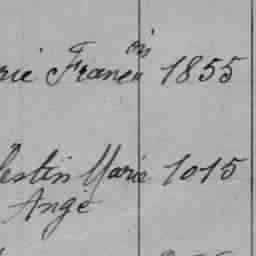 rie Francis 1855
lestin Marie 1015
Ange